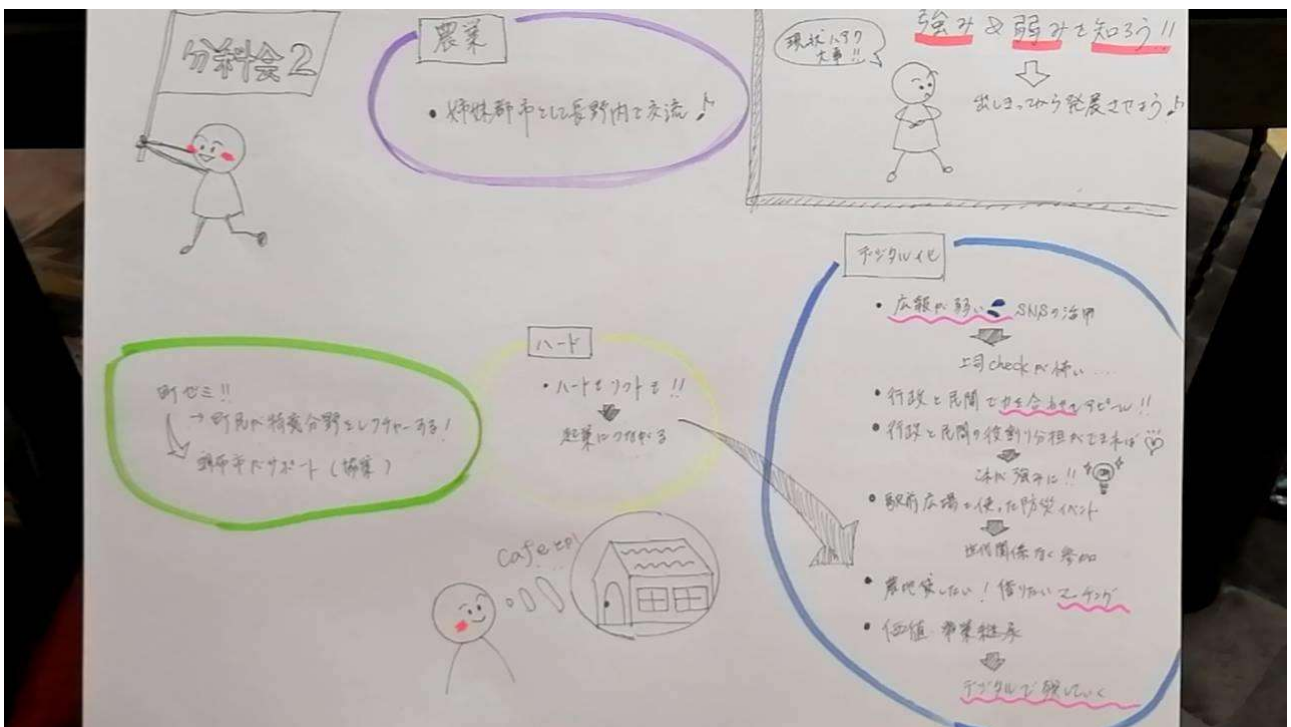 分科会2
農業
・姉妹都市として長野内で交流♪
現状ハアク
大事!!
強み&弱みを知ろう!!
出しきってから発展させよう♪
デジタル化
・広報が弱い SNSの活用
上司checkが怖い....
・行政と民間で力を合わせてアピール!!
・行政と民間の役割り分担ができれば
これが強みに!!
・駅前広場を使った防災イベント
世代関係なく参加
・農地貸したい!借りたいマッチング
・価値・事業継承
デジタルで残していく
ハード
・ハードもソフトも!!
起業につながる
町ゼミ!!
→町民が得意分野をレクチャーする!
調布市がサポート(協業)
Cafeとか!